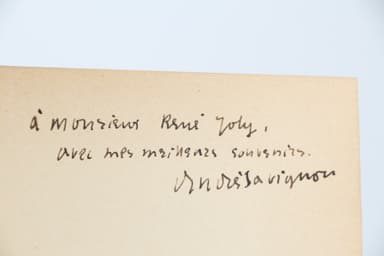 à Monsieur René Joly,
avec mes meilleurs souvenirs.
André Savignon